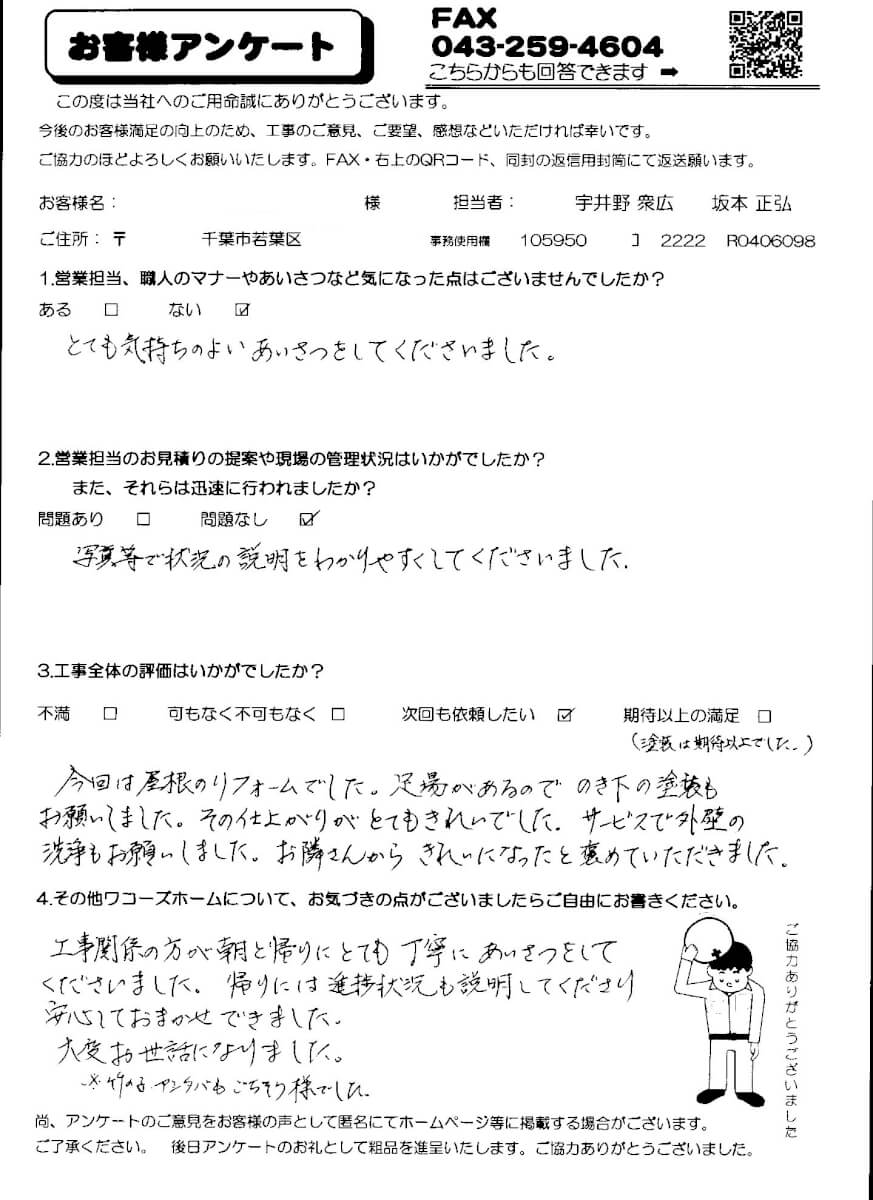 お客様アンケート
FAX
043-259-4604
こちらからも回答できます ➡
この度は当社へのご用命誠にありがとうございます。
今後のお客様満足の向上のため、工事のご意見、ご要望、感想などいただければ幸いです。
ご協力のほどよろしくお願いいたします。FAX・右上のQRコード、同封の返信用封筒にて返送願います。
お客様名： 様 担当者： 宇井野 衆広 坂本 正弘
ご住所：〒 千葉市若葉区 事務使用欄 105950 】 2222 R0406098
1.営業担当、職人のマナーやあいさつなど気になった点はございませんでしたか？
ある □ ない ☑
とても気持ちのよい あいさつをしてくださいました。
2.営業担当のお見積りの提案や現場の管理状況はいかがでしたか？
また、それらは迅速に行われましたか？
問題あり □ 問題なし ☑
写真等で状況の説明をわかりやすくしてくださいました.
3.工事全体の評価はいかがでしたか？
不満 □ 可もなく不可もなく □ 次回も依頼したい ☑ 期待以上の満足 □
(塗装は期待以上でした.)
今回は屋根のリフォームでした。足場があるので のき下の塗装も
お願いしました。その仕上がりが とてもきれいでした. サービスで外壁の
洗浄もお願いしました。お隣さんから きれいになったと褒めていただきました。
4.その他ワコーズホームについて、お気づきの点がございましたらご自由にお書きください。
工事関係の方が朝と帰りにとても 丁寧に あいさつをして
くださいました。帰りには進捗状況も説明してくださり
安心しておまかせできました.
大変お世話になりました。
※竹の子 もごちそう様でした.
ご協力ありがとうございました
尚、アンケートのご意見をお客様の声として匿名にてホームページ等に掲載する場合がございます。
ご了承ください。 後日アンケートのお礼として粗品を進呈いたします。ご協力ありがとうございました。